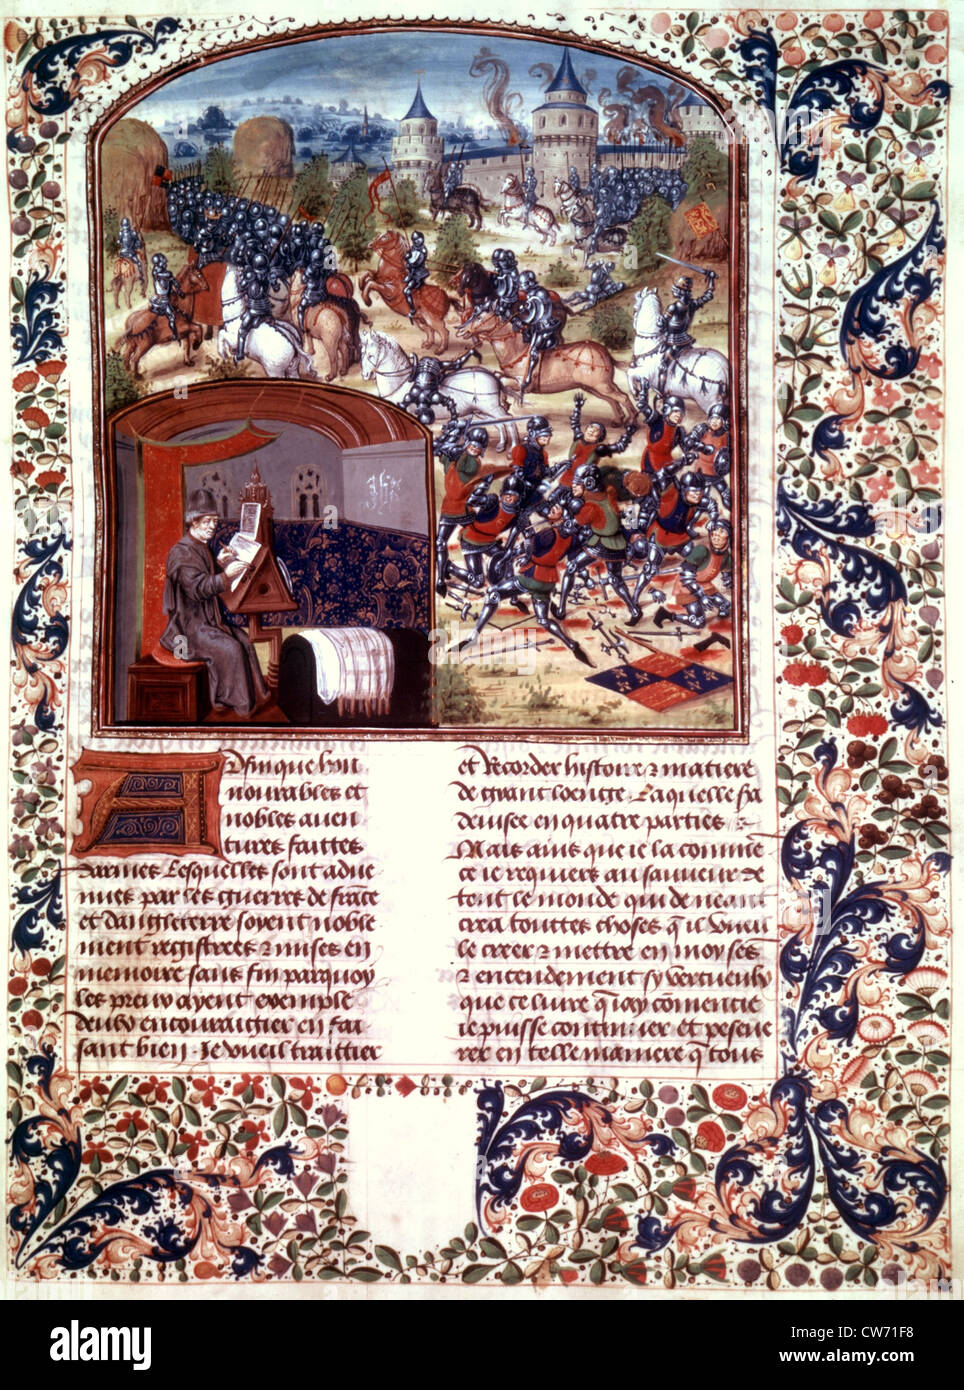 Afinque hon
nourables et
nobles aven
tures faittes
darmes Lesquelles sont adve
nues par les guerres de frāce
et dangleterre soyent noble
ment registrees & mises en
memoire sans fin parquoy
les preux ayent exemple
deulx encouraigier en fai
sant bien. Je vueil traittier
et Recorder histoire & matiere
de grant loenge. Laquelle sa
devisee en quatre parties &
Mais ains que ie la comme
ce ie requiers au sauveur de
tout le monde qui de neant
crea touttes choses q̄ il vueil
le creer & mettre en moy sēs
& entendement sy vertueulx
que ce livre q̄ iay cōmencie
ie puisse continuer et perseue
rer en telle maniere q̄ tous
alamy
Image ID: CW71F8
www.alamy.com